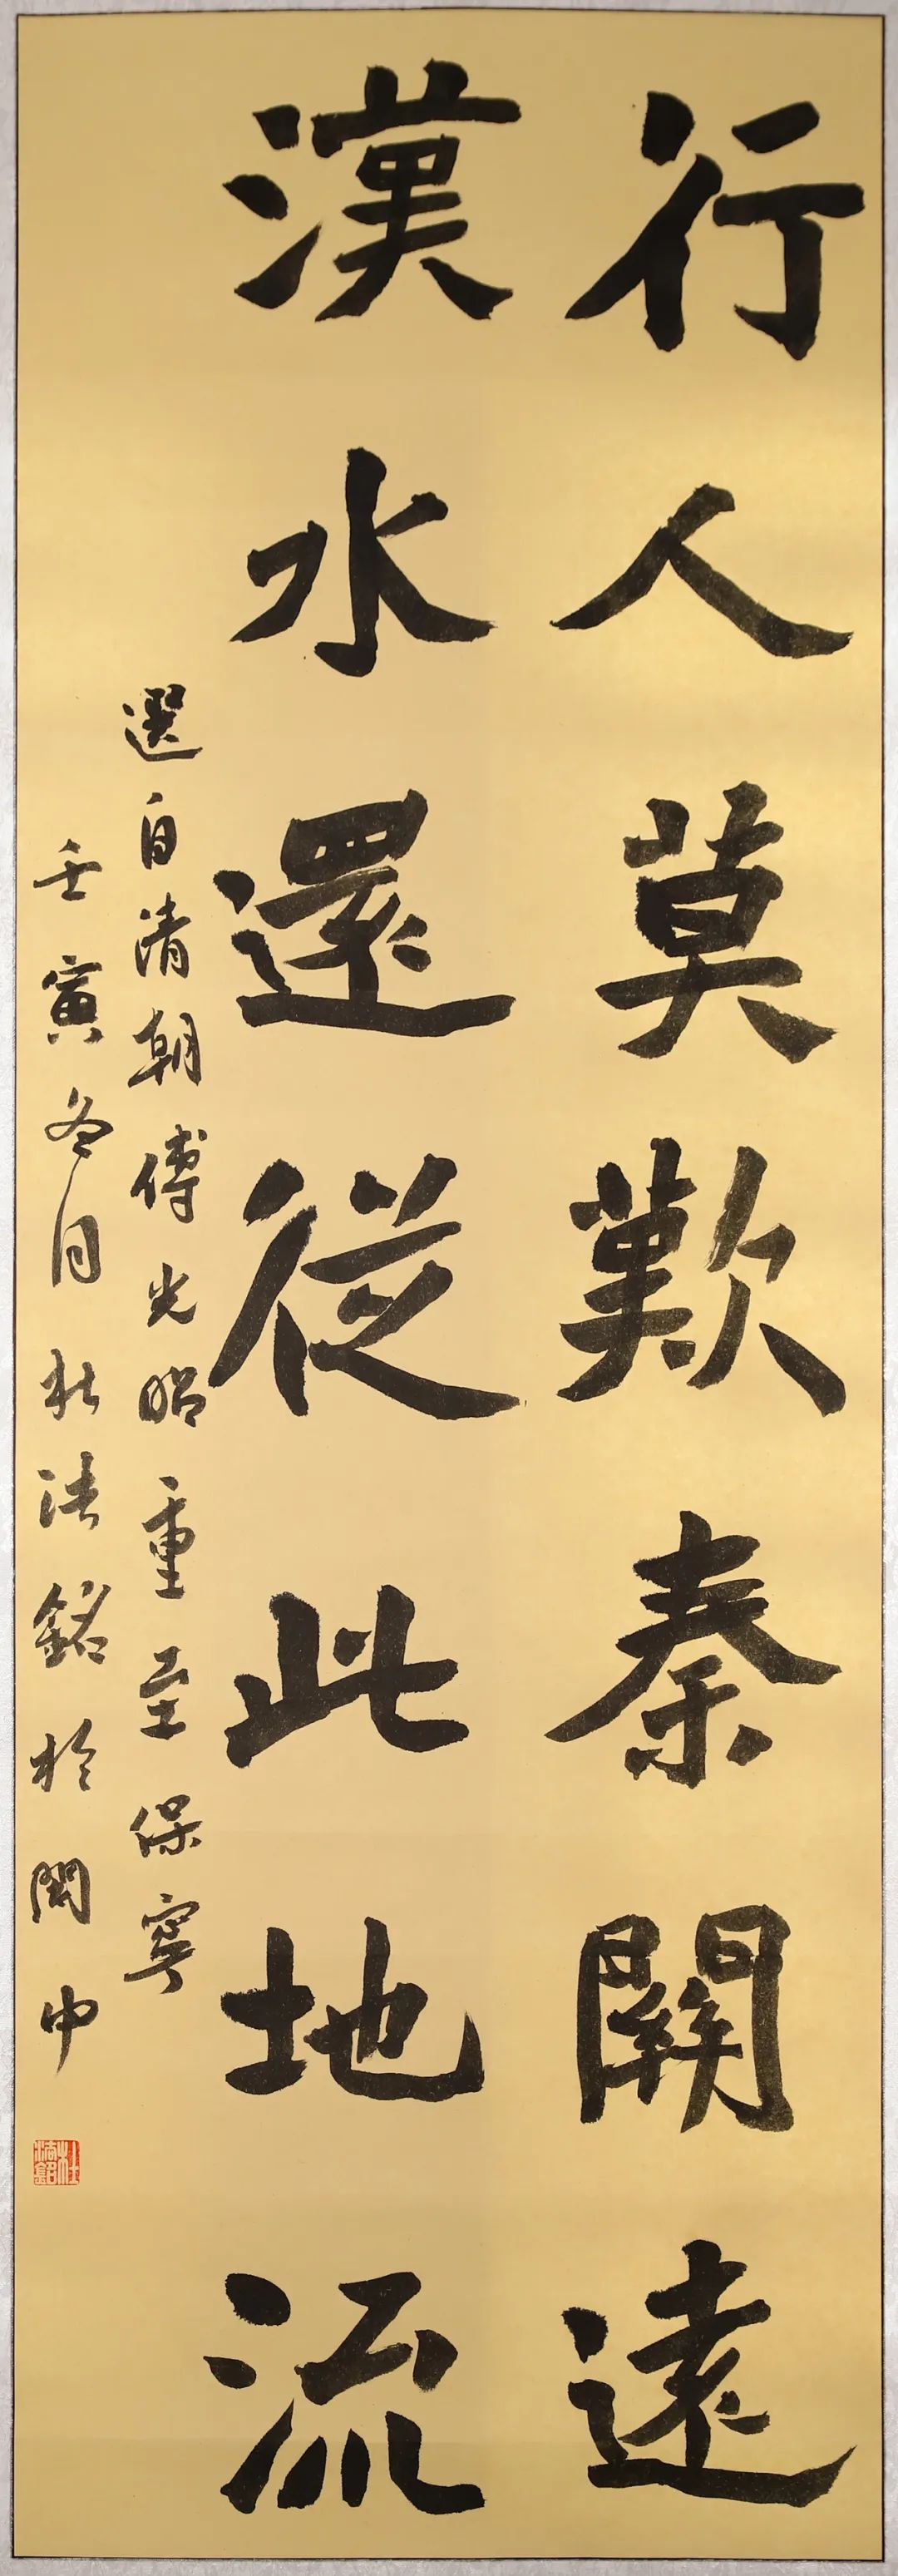 行人莫歎秦關遠
漢水還從此地流
選自清朝傅光昭重至保寧
壬寅冬月杜浩銘於閬中